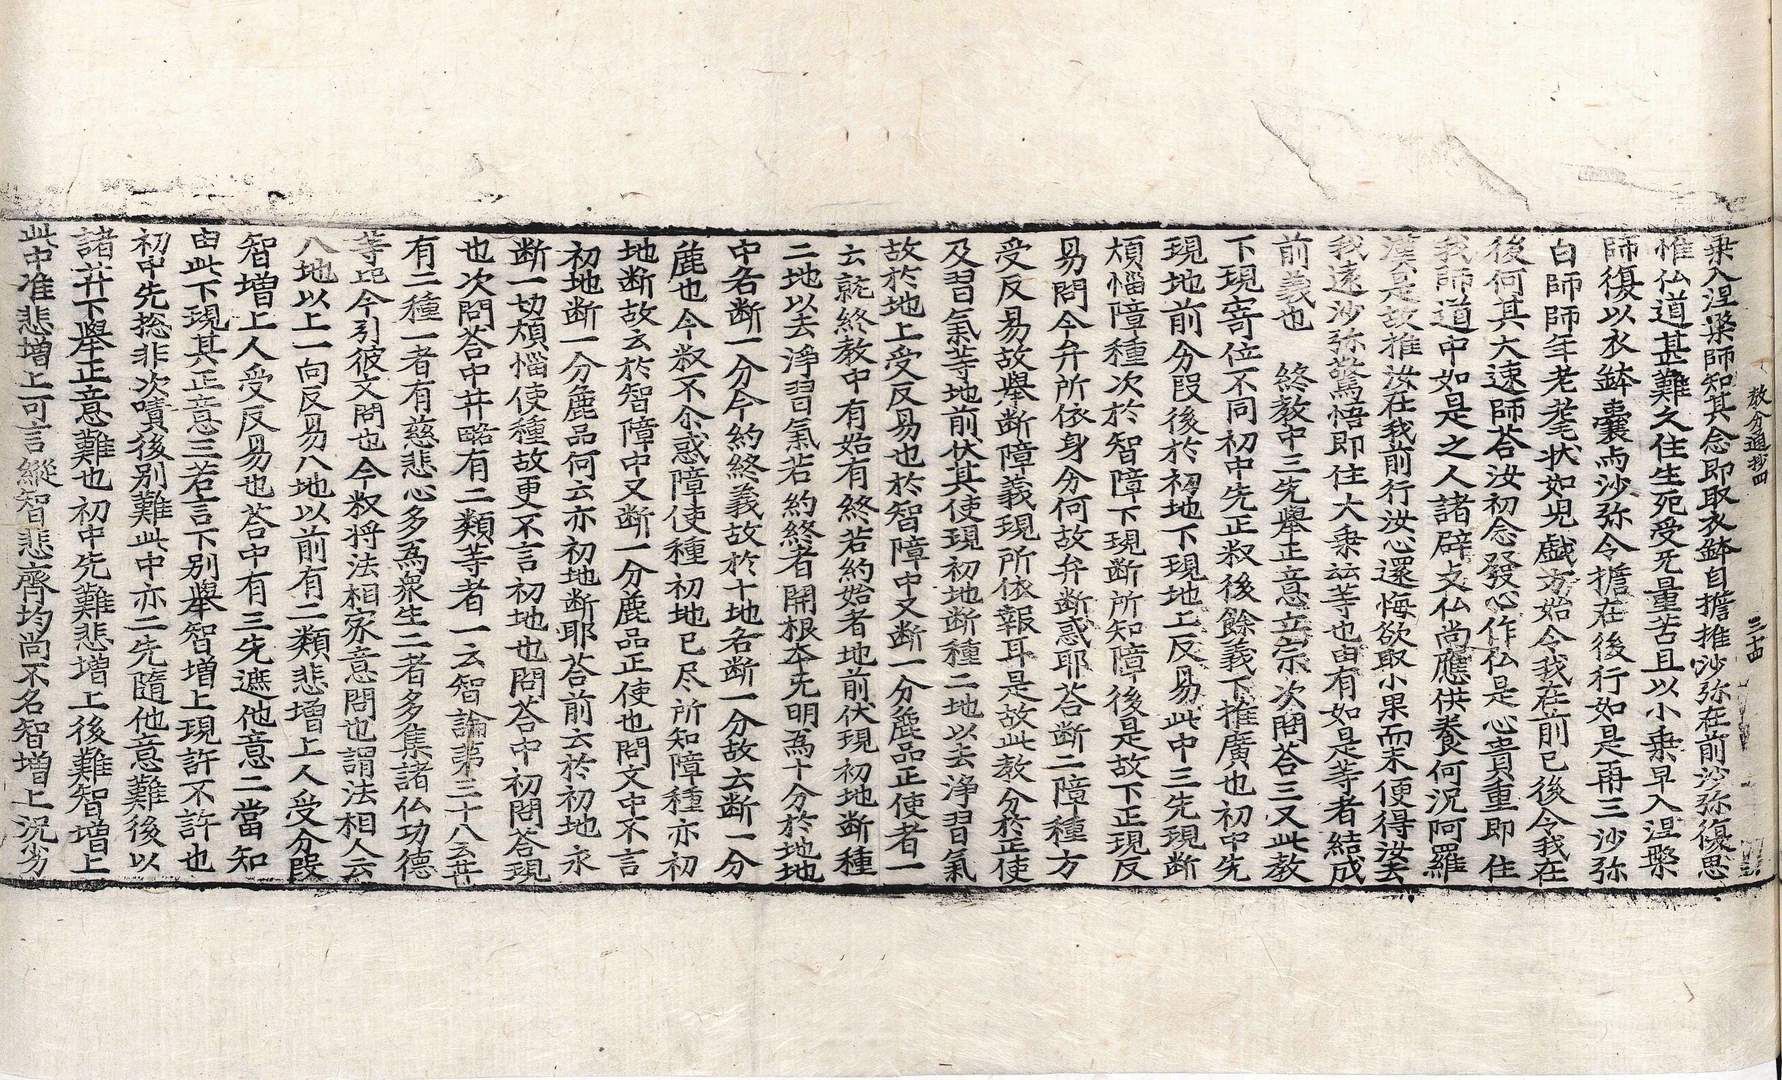 教分通抄四　三十四
乘入涅槃師知其念即取衣鉢自擔推沙弥在前沙弥復思
惟仏道甚難久住生死受无量苦且以小乘早入涅槃
師復以衣鉢囊与沙弥令擔在後行如是再三沙弥
白師師年老耄状如兒戱方始令我在前已後令我在
後何其大速師荅汝初念發心作仏是心貴重即住
我師道中如是之人諸辟支仏尚應供養何況阿羅
漢是故推汝在我前行汝心還悔欲取小果而未便得汝去
我遠沙弥驚悟即住大乘云等也由有如是等者結成
前義也　終教中三先舉正意立宗次問荅三又此教
下現寄位不同初中先正叙後餘義下推廣也初中先
現地前分段後於初地下現地上反易此中三先現断
煩惱障種次於智障下現断所知障後是故下正現反
易問今弁所依身分何故弁断惑耶荅断二障種方
受反易故舉断障義現所依報耳是故此教分於正使
及習氣等地前伏其使現初地断種二地以去淨習氣
故於地上受反易也於智障中又断一分麁品正使者一
云就終教中有始有終若約始者地前伏現初地断種
二地以去淨習氣若約終者開根本无明為十分於地地
中各断一分今約終義故於十地各断一分故云断一分
麁也今叙不尒惑障使種初地已尽所知障種亦初
地断故云於智障中又断一分麁品正使也問文中不言
初地断一分麁品何云亦初地断耶荅前云於初地永
断一切煩惱使種故更不言初地也問荅中初問荅現
也次問荅中井略有二類等者一云智論第三十八云井
有二種一者有慈悲心多為衆生二者多集諸仏功德
等此今引彼文問也今叙将法相家意問也謂法相人云
八地以上一向反易八地以前有二類悲增上人受分段
智增上人受反易也荅中有三先遮他意二當知
由此下現其正意三若言下別舉智增上現許不許也
初中先捴非次嘖後別難此中亦二先隨他意難後以
諸井下舉正意難也初中先難悲增上後難智增上
此中准悲增上可言縱智悲齊均尚不名智增上況劣